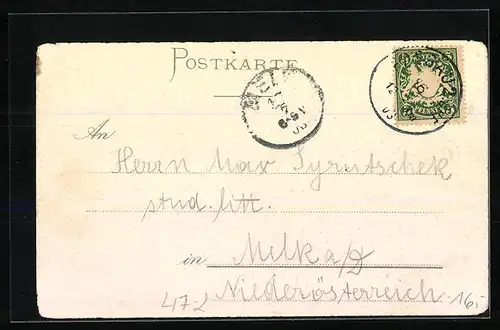 POSTKARTE
An
Herrn Max
stud. litt.
in Melk a/D
Niederösterreich
472
16,-